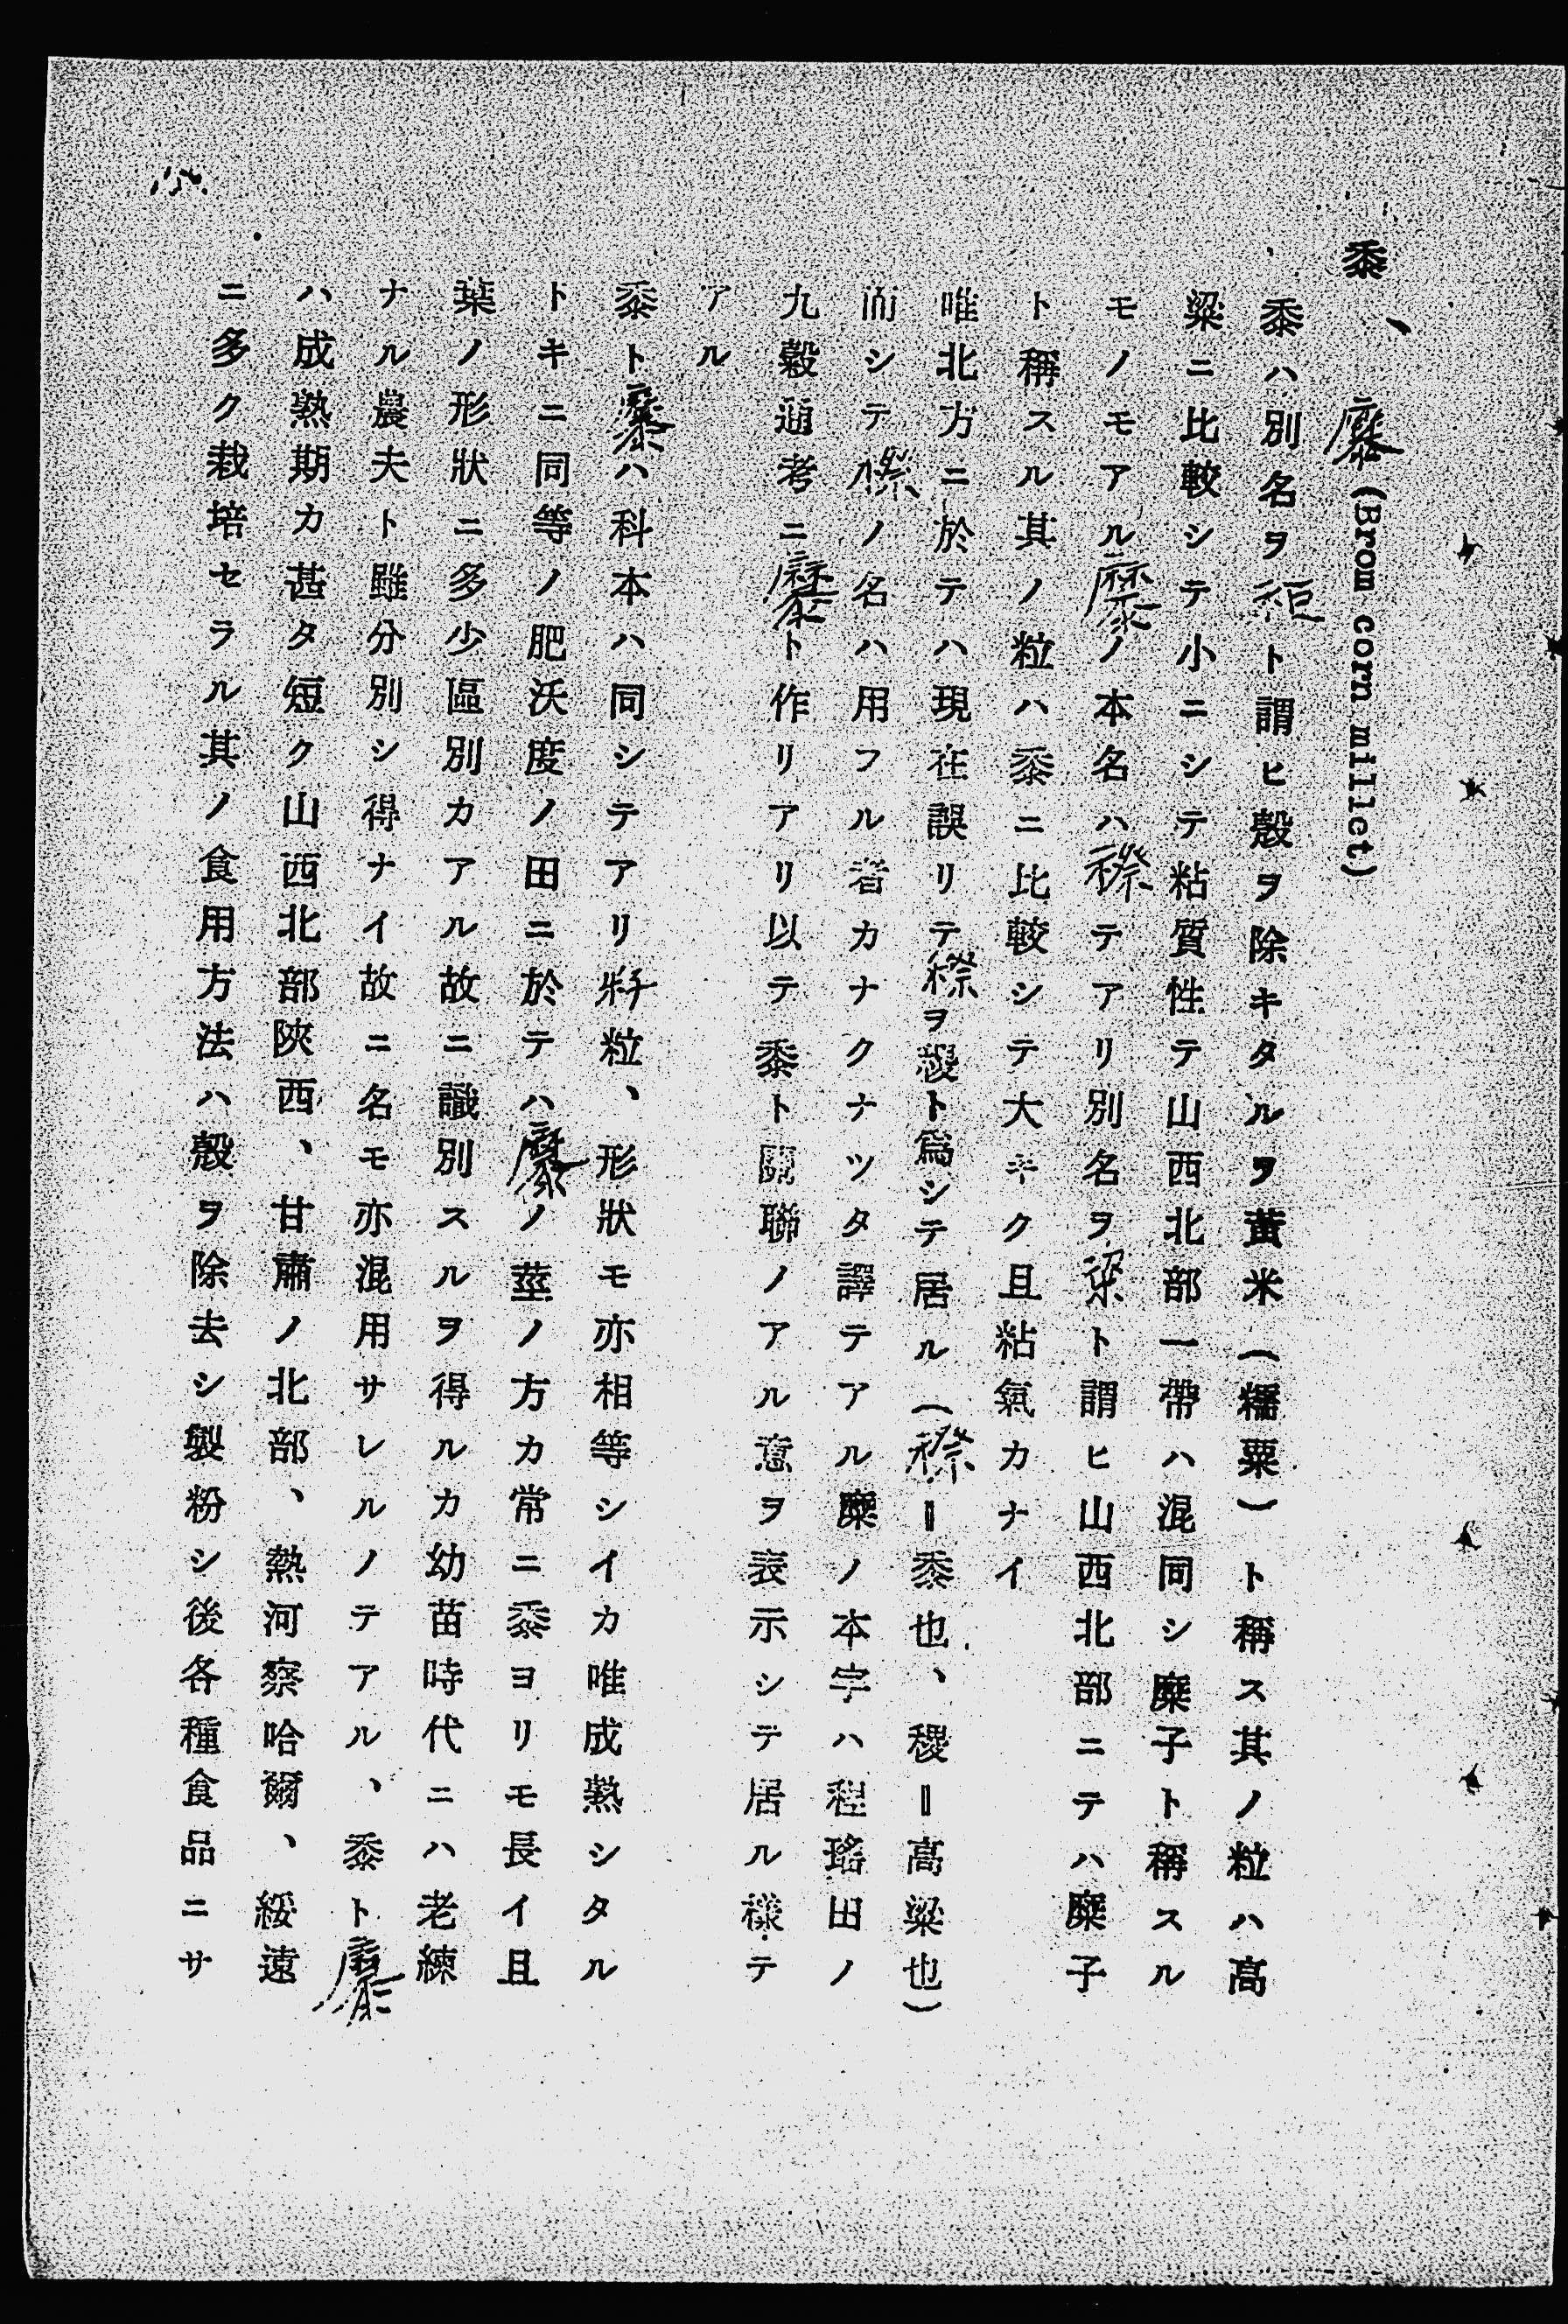 黍、穈(Brom corn millet)
黍ハ別名ヲ秬ト謂ヒ殼ヲ除キタルヲ黃米(糯粟)ト稱ス其ノ粒ハ高
粱ニ比較シテ小ニシテ粘質性テ山西北部一帶ハ混同シ糜子ト稱スル
モノモアル穈ノ本名ハ穄テアリ別名ヲ粢ト謂ヒ山西北部ニテハ糜子
ト稱スル其ノ粒ハ黍ニ比較シテ大キク且粘氣カナイ
唯北方ニ於テハ現在誤リテ穄ヲ稷ト爲シテ居ル(穄=黍也、稷=高粱也)
而シテ穄ノ名ハ用フル者カナクナツタ譯テアル糜ノ本字ハ程瑤田ノ
九穀通考ニ穈ト作リアリ以テ黍ト關聯ノアル意ヲ表示シテ居ル樣テ
アル
黍ト穈ハ科本ハ同シテアリ籽粒、形狀モ亦相等シイカ唯成熟シタル
トキニ同等ノ肥沃度ノ田ニ於テハ穈ノ莖ノ方カ常ニ黍ヨリモ長イ且
葉ノ形狀ニ多少區別カアル故ニ識別スルヲ得ルカ幼苗時代ニハ老練
ナル農夫ト雖分別シ得ナイ故ニ名モ亦混用サレルノテアル、黍ト穈
ハ成熟期カ甚タ短ク山西北部陝西、甘肅ノ北部、熱河察哈爾、綏遠
ニ多ク栽培セラル其ノ食用方法ハ殼ヲ除去シ製粉シ後各種食品ニサ